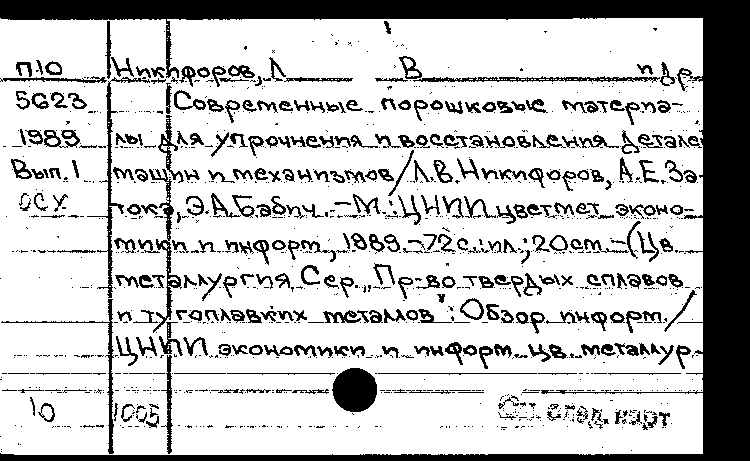 П.10 Никифоров, Л В и др
5623 Современные порошковые материа-
1989 лы для упрочнения и восстановления деталей
Вып.1 машин и механизмов / Л.В. Никифоров, А.Е. За-
ОСХ тока, Э.А. Бабич. - М.: ЦНИИ цветмет эконо-
мики и информ, 1989. - 72 с.: ил.; 20 см. - (Цв
металлургия, Сер. „Пр-во твердых сплавов
и тугоплавких металлов": Обзор. информ. /
ЦНИИ экономики и информ. цв. металлур-
10 1005 См. след. карт